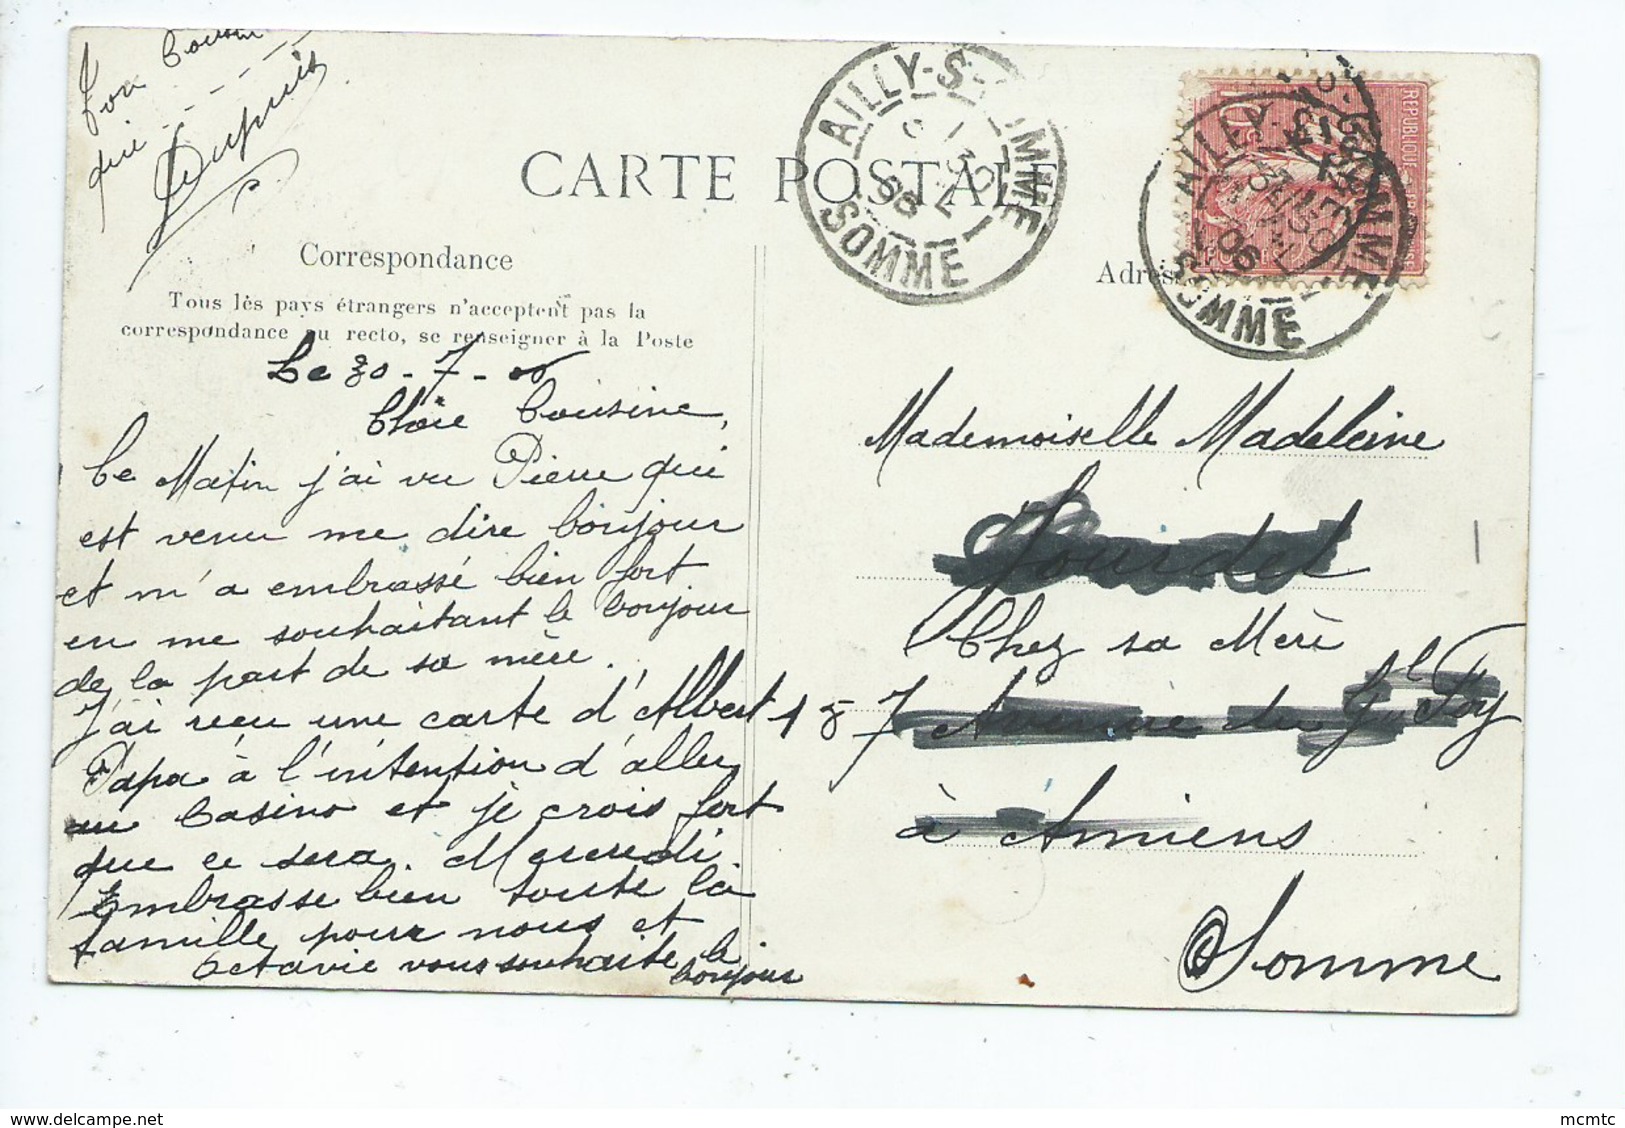 Ton Cousin
qui
Dupuis
CARTE POSTALE
AILLY-S-SOMME
SOMME
30
06
REPUBLIQUE
Correspondance
Tous les pays étrangers n'acceptent pas la
correspondance au recto, se renseigner à la Poste
Adresse
Le 30-7-06
Chère Cousine,
Ce Matin j'ai vu Pierre qui
est venu me dire bonjour
et m'a embrassé bien fort
en me souhaitant le bonjour
de la part de sa mère.
J'ai reçu une carte d'Albert
Papa à l'intention d'aller
au Casino et je crois fort
que ce sera Mercredi.
Embrasse bien toute la
famille pour nous et
Octavie vous souhaite le
bonjour
Mademoiselle Madeleine
Jourdel
Chez sa Mère
187 Avenue du Gl Foy
à Amiens
Somme
mcmtc